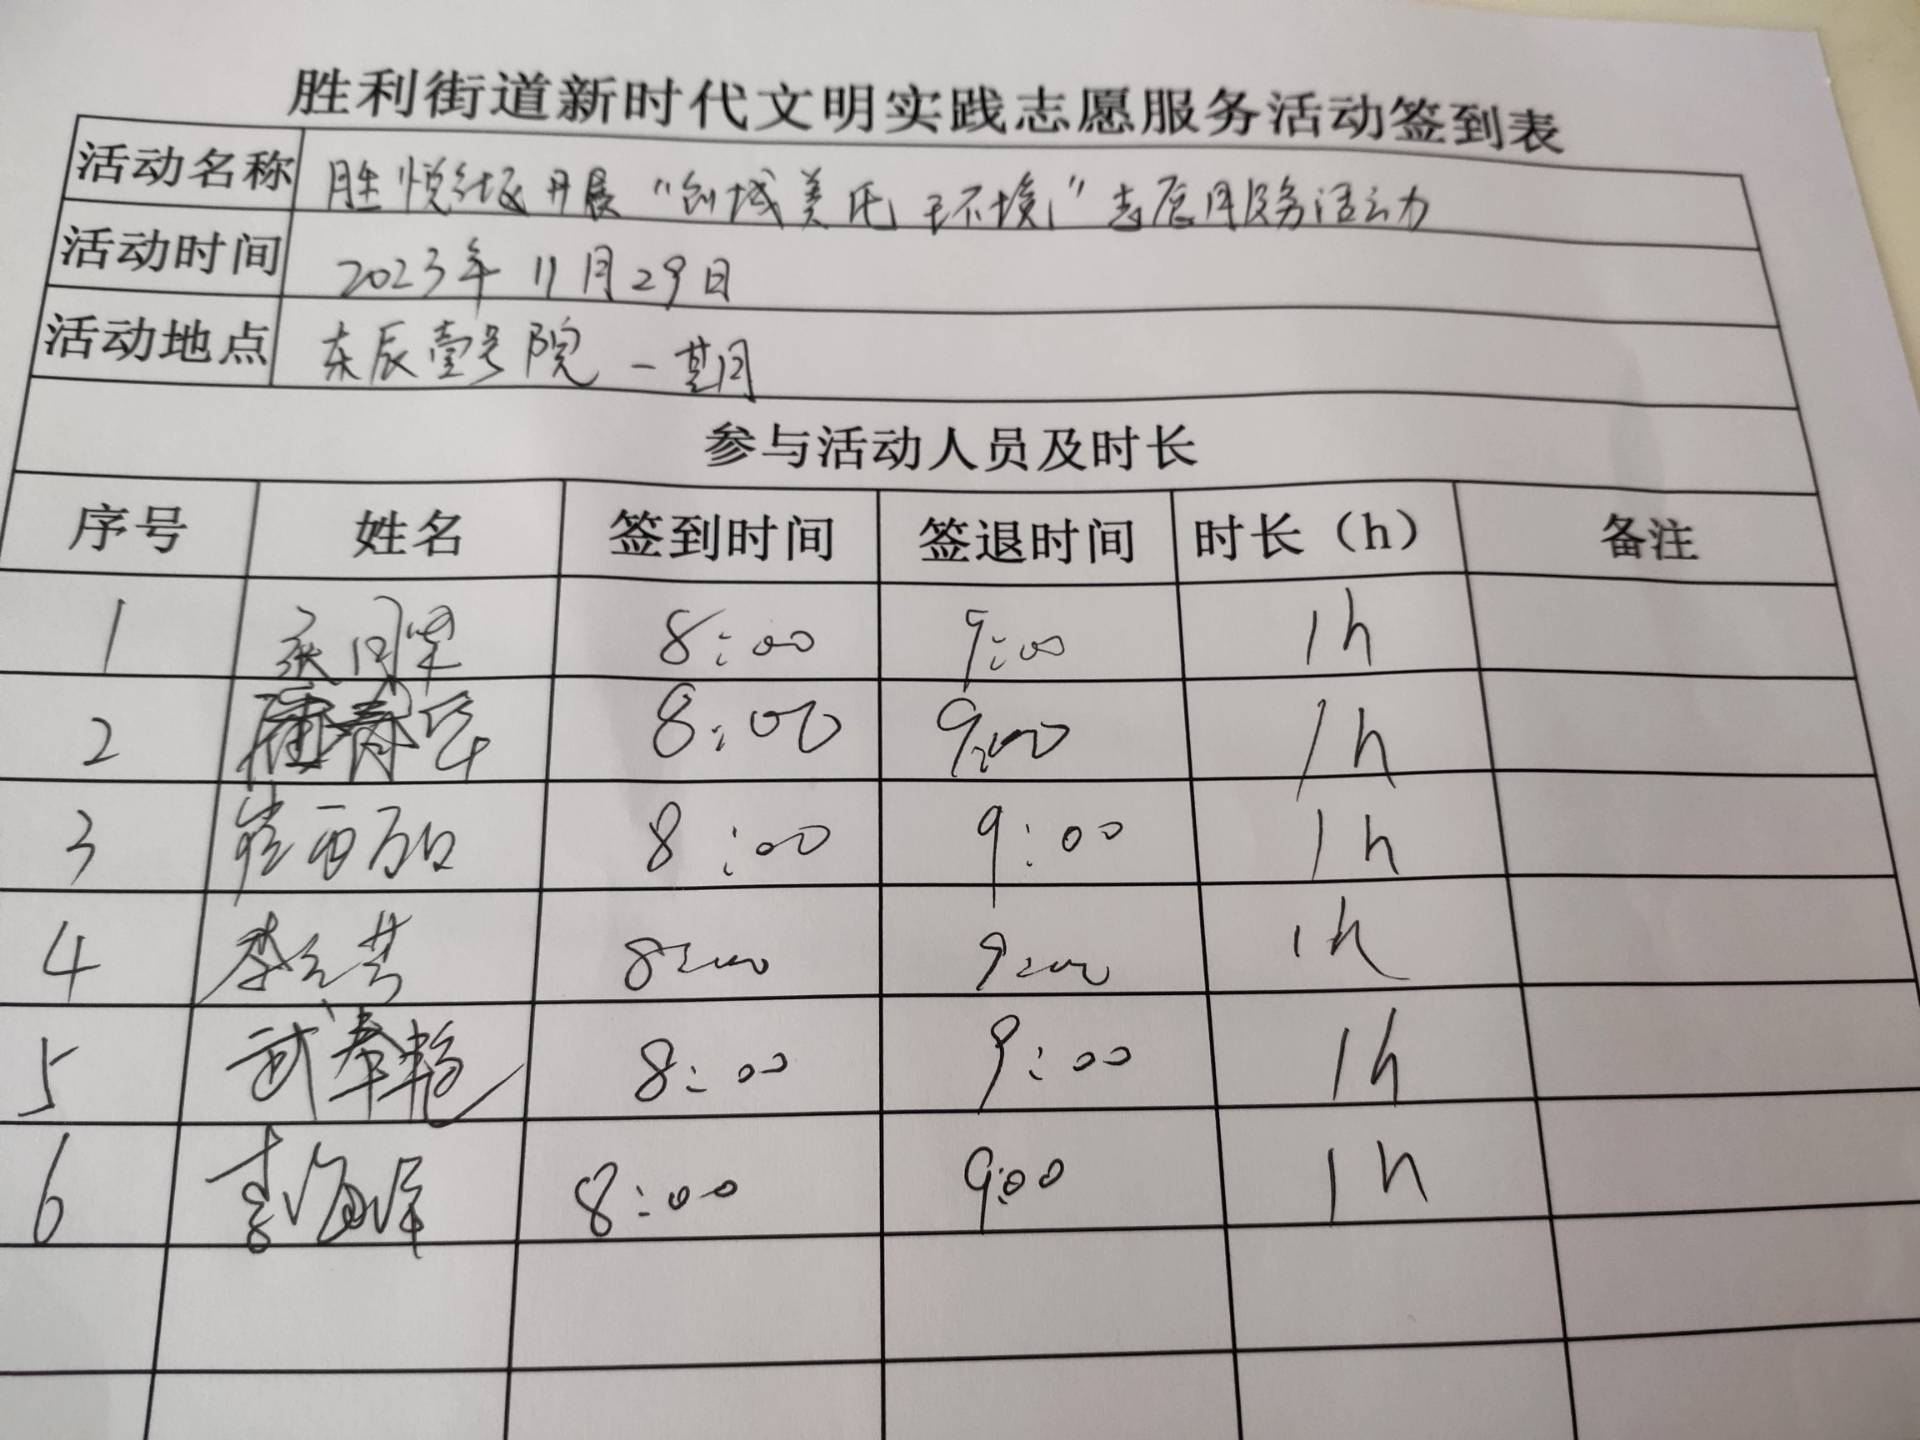 胜利街道新时代文明实践志愿服务活动签到表
活动名称 胜悦社区开展“创城美化环境”志愿服务活动
活动时间 2023年11月29日
活动地点 东辰壹号院一期
参与活动人员及时长
序号 姓名 签到时间 签退时间 时长（h） 备注
1 8:00 9:00 1h
2 8:00 9:00 1h
3 8:00 9:00 1h
4 8:00 9:00 1h
5 武 8:00 9:00 1h
6 8:00 9:00 1h